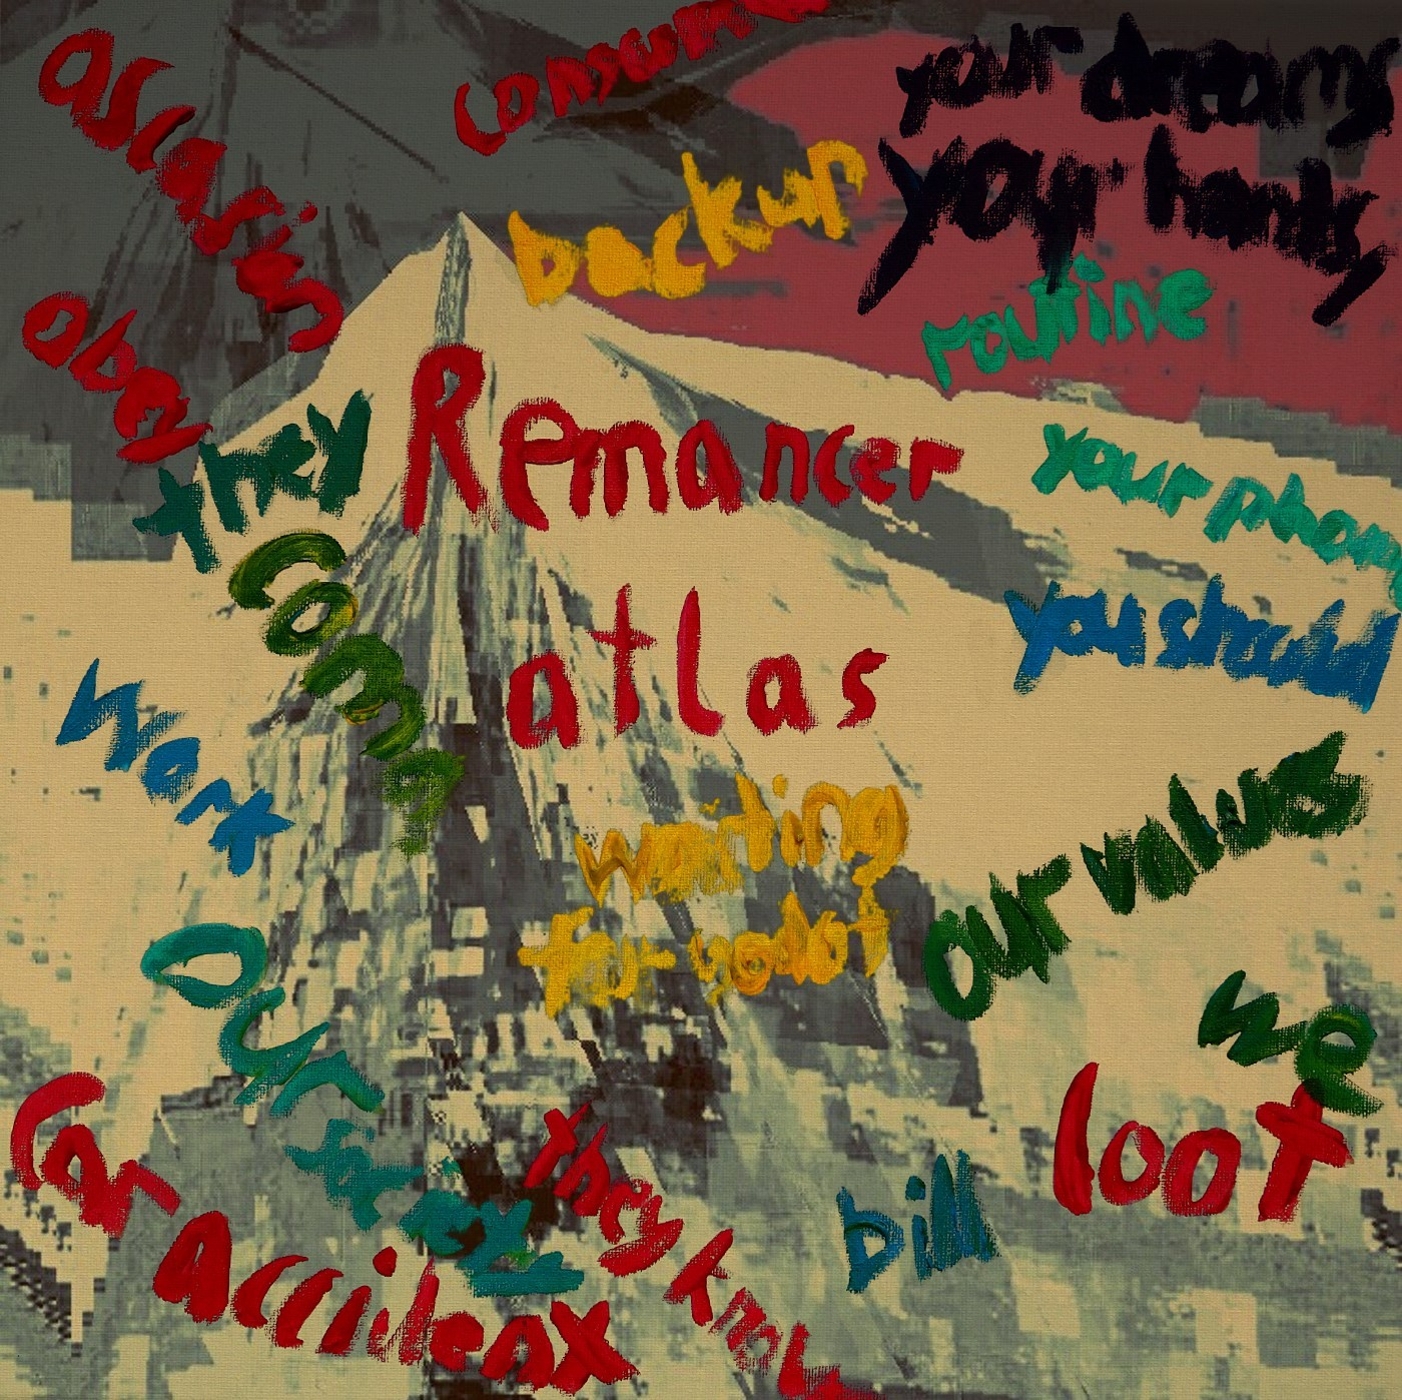 consum
your dreams
your hands,
backup
routine
obey
they
Remancer
your phon
coma
you should
atlas
work
waiting
for godot
our values
our
we
loot
car
they know
bill